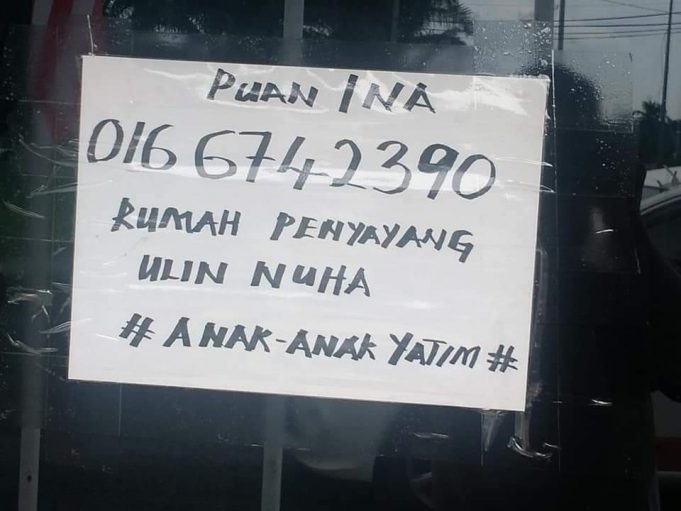 PUAN INA
016 6742390
RUMAH PENYAYANG
ULIN NUHA
# ANAK-ANAK YATIM #